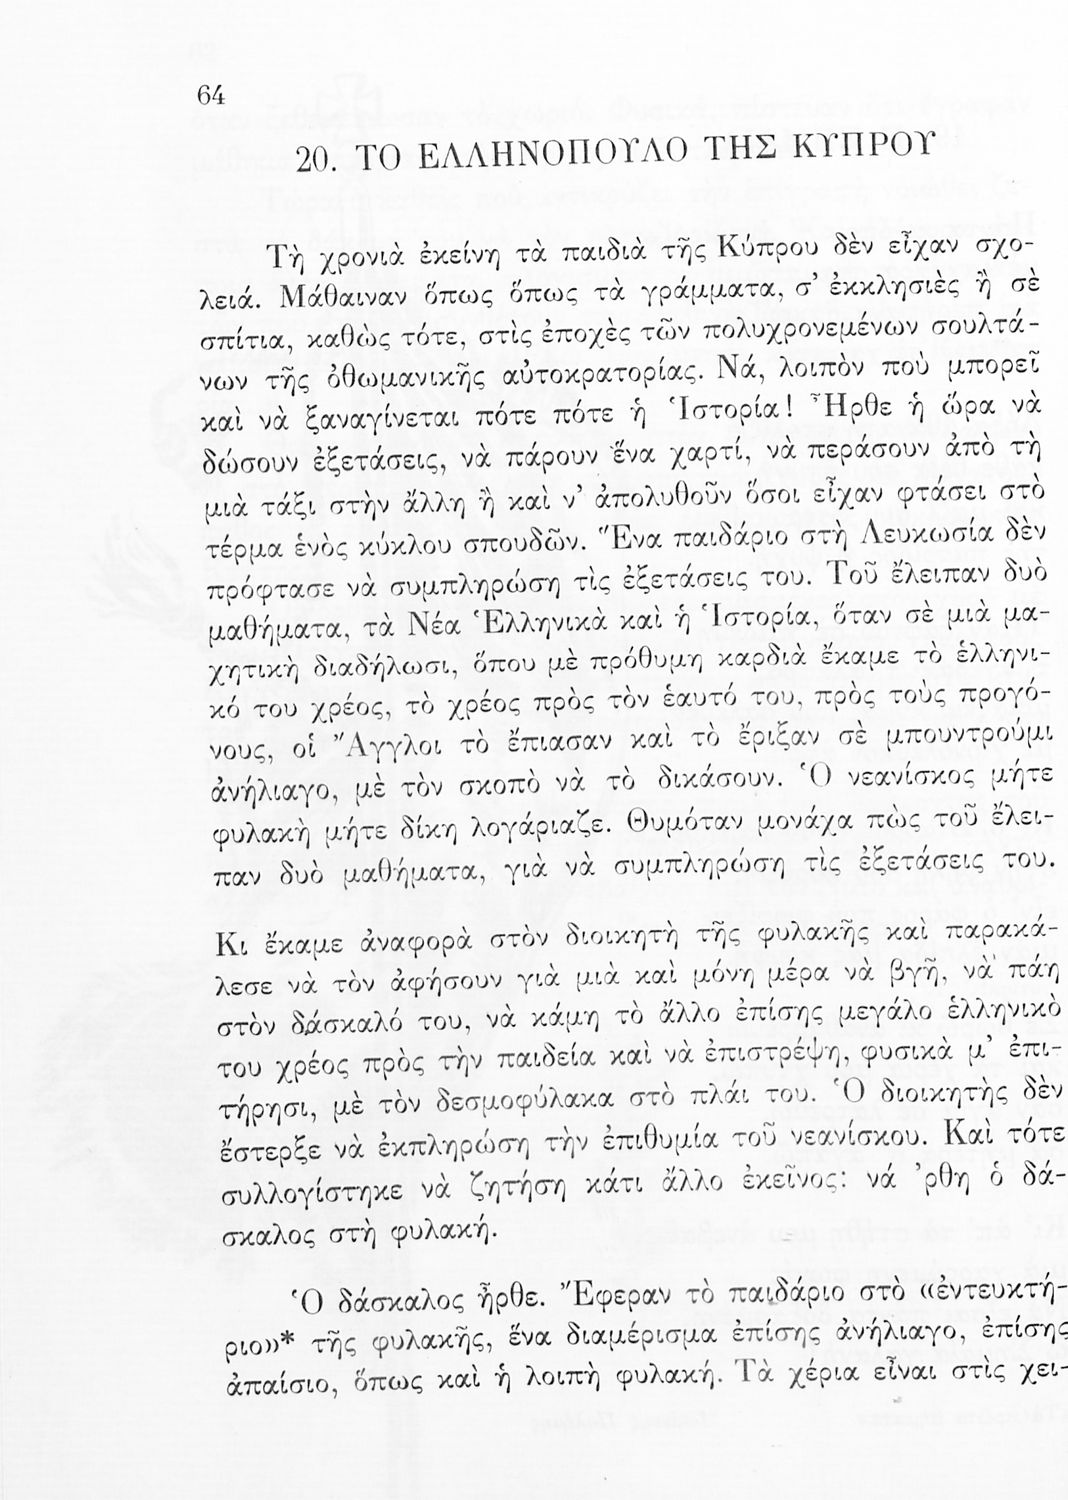 64
20. ΤΟ ΕΛΛΗΝΟΠΟΥΛΟ ΤΗΣ ΚΥΠΡΟΥ
Τὴ χρονιὰ ἐκείνη τὰ παιδιὰ τῆς Κύπρου δὲν εἶχαν σχο-
λειά. Μάθαιναν ὅπως ὅπως τὰ γράμματα, σ’ ἐκκλησιὲς ἢ σὲ
σπίτια, καθὼς τότε, στὶς ἐποχὲς τῶν πολυχρονεμένων σουλτά-
νων τῆς ὀθωμανικῆς αὐτοκρατορίας. Νά, λοιπὸν ποὺ μπορεῖ
καὶ νὰ ξαναγίνεται πότε πότε ἡ Ἱστορία! Ἦρθε ἡ ὥρα νὰ
δώσουν ἐξετάσεις, νὰ πάρουν ἕνα χαρτί, νὰ περάσουν ἀπὸ τὴ
μιὰ τάξι στὴν ἄλλη ἢ καὶ ν’ ἀπολυθοῦν ὅσοι εἶχαν φτάσει στὸ
τέρμα ἑνὸς κύκλου σπουδῶν. Ἕνα παιδάριο στὴ Λευκωσία δὲν
πρόφτασε νὰ συμπληρώση τὶς ἐξετάσεις του. Τοῦ ἔλειπαν δυὸ
μαθήματα, τὰ Νέα Ἑλληνικὰ καὶ ἡ Ἱστορία, ὅταν σὲ μιὰ μα-
χητικὴ διαδήλωσι, ὅπου μὲ πρόθυμη καρδιὰ ἔκαμε τὸ ἑλληνι-
κό του χρέος, τὸ χρέος πρὸς τὸν ἑαυτό του, πρὸς τοὺς προγό-
νους, οἱ Ἄγγλοι τὸ ἔπιασαν καὶ τὸ ἔριξαν σὲ μπουντρούμι
ἀνήλιαγο, μὲ τὸν σκοπὸ νὰ τὸ δικάσουν. Ὁ νεανίσκος μήτε
φυλακὴ μήτε δίκη λογάριαζε. Θυμόταν μονάχα πὼς τοῦ ἔλει-
παν δυὸ μαθήματα, γιὰ νὰ συμπληρώση τὶς ἐξετάσεις του.
Κι ἔκαμε ἀναφορὰ στὸν διοικητὴ τῆς φυλακῆς καὶ παρακά-
λεσε νὰ τὸν ἀφήσουν γιὰ μιὰ καὶ μόνη μέρα νὰ βγῆ, νὰ πάη
στὸν δάσκαλό του, νὰ κάμη τὸ ἄλλο ἐπίσης μεγάλο ἑλληνικὸ
του χρέος πρὸς τὴν παιδεία καὶ νὰ ἐπιστρέψη, φυσικὰ μ’ ἐπι-
τήρησι, μὲ τὸν δεσμοφύλακα στὸ πλάι του. Ὁ διοικητὴς δὲν
ἔστερξε νὰ ἐκπληρώση τὴν ἐπιθυμία τοῦ νεανίσκου. Καὶ τότε
συλλογίστηκε νὰ ζητήση κάτι ἄλλο ἐκεῖνος: νά ’ρθη ὁ δά-
σκαλος στὴ φυλακή.
Ὁ δάσκαλος ἦρθε. Ἔφεραν τὸ παιδάριο στὸ «ἐντευκτή-
ριο»* τῆς φυλακῆς, ἕνα διαμέρισμα ἐπίσης ἀνήλιαγο, ἐπίσης
ἀπαίσιο, ὅπως καὶ ἡ λοιπὴ φυλακή. Τὰ χέρια εἶναι στὶς χει-